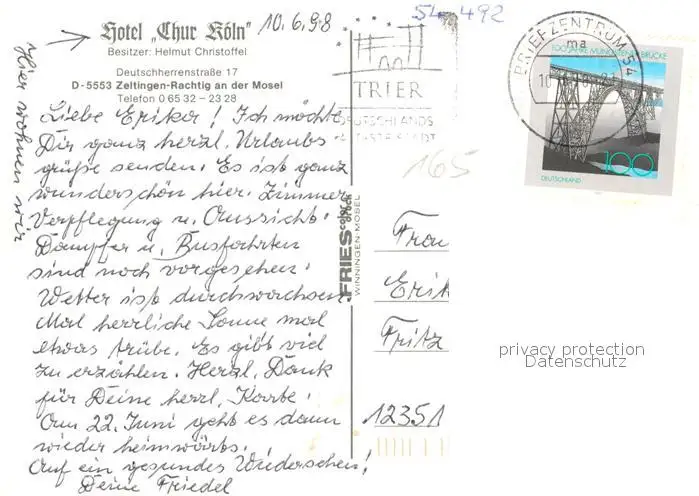 Hotel „Chur Köln"
10.6.98
Besitzer: Helmut Christoffel
Deutschherrenstraße 17
D-5553 Zeltingen-Rachtig an der Mosel
Telefon 0 65 32 – 23 28
Hier wohnen wir
Liebe Erika! Ich möchte
Dir ganz herzl. Urlaubs
grüße senden. Es ist ganz
wunderschön hier. Zimmer
Verpflegung u. Aussicht!
Dampfer u. Busfahrten
sind noch vorgesehen!
Wetter ist durchwachsen
Mal herrliche Sonne mal
etwas trübe. Es gibt viel
zu erzählen. Herzl. Dank
für Deine herzl. Karte!
Am 22. Juni geht es dann
wieder heimwärts.
Auf ein gesundes Wiedersehen!
Deine Friedel
54-492
TRIER
DEUTSCHLANDS
165
BRIEFZENTRUM 54
ma
100 JAHRE MÜNGSTENER BRÜCKE
100
DEUTSCHLAND
FRIES color druck
WINNINGEN-MOSEL
Frau
Erik
Fritz
12351
privacy protection
Datenschutz